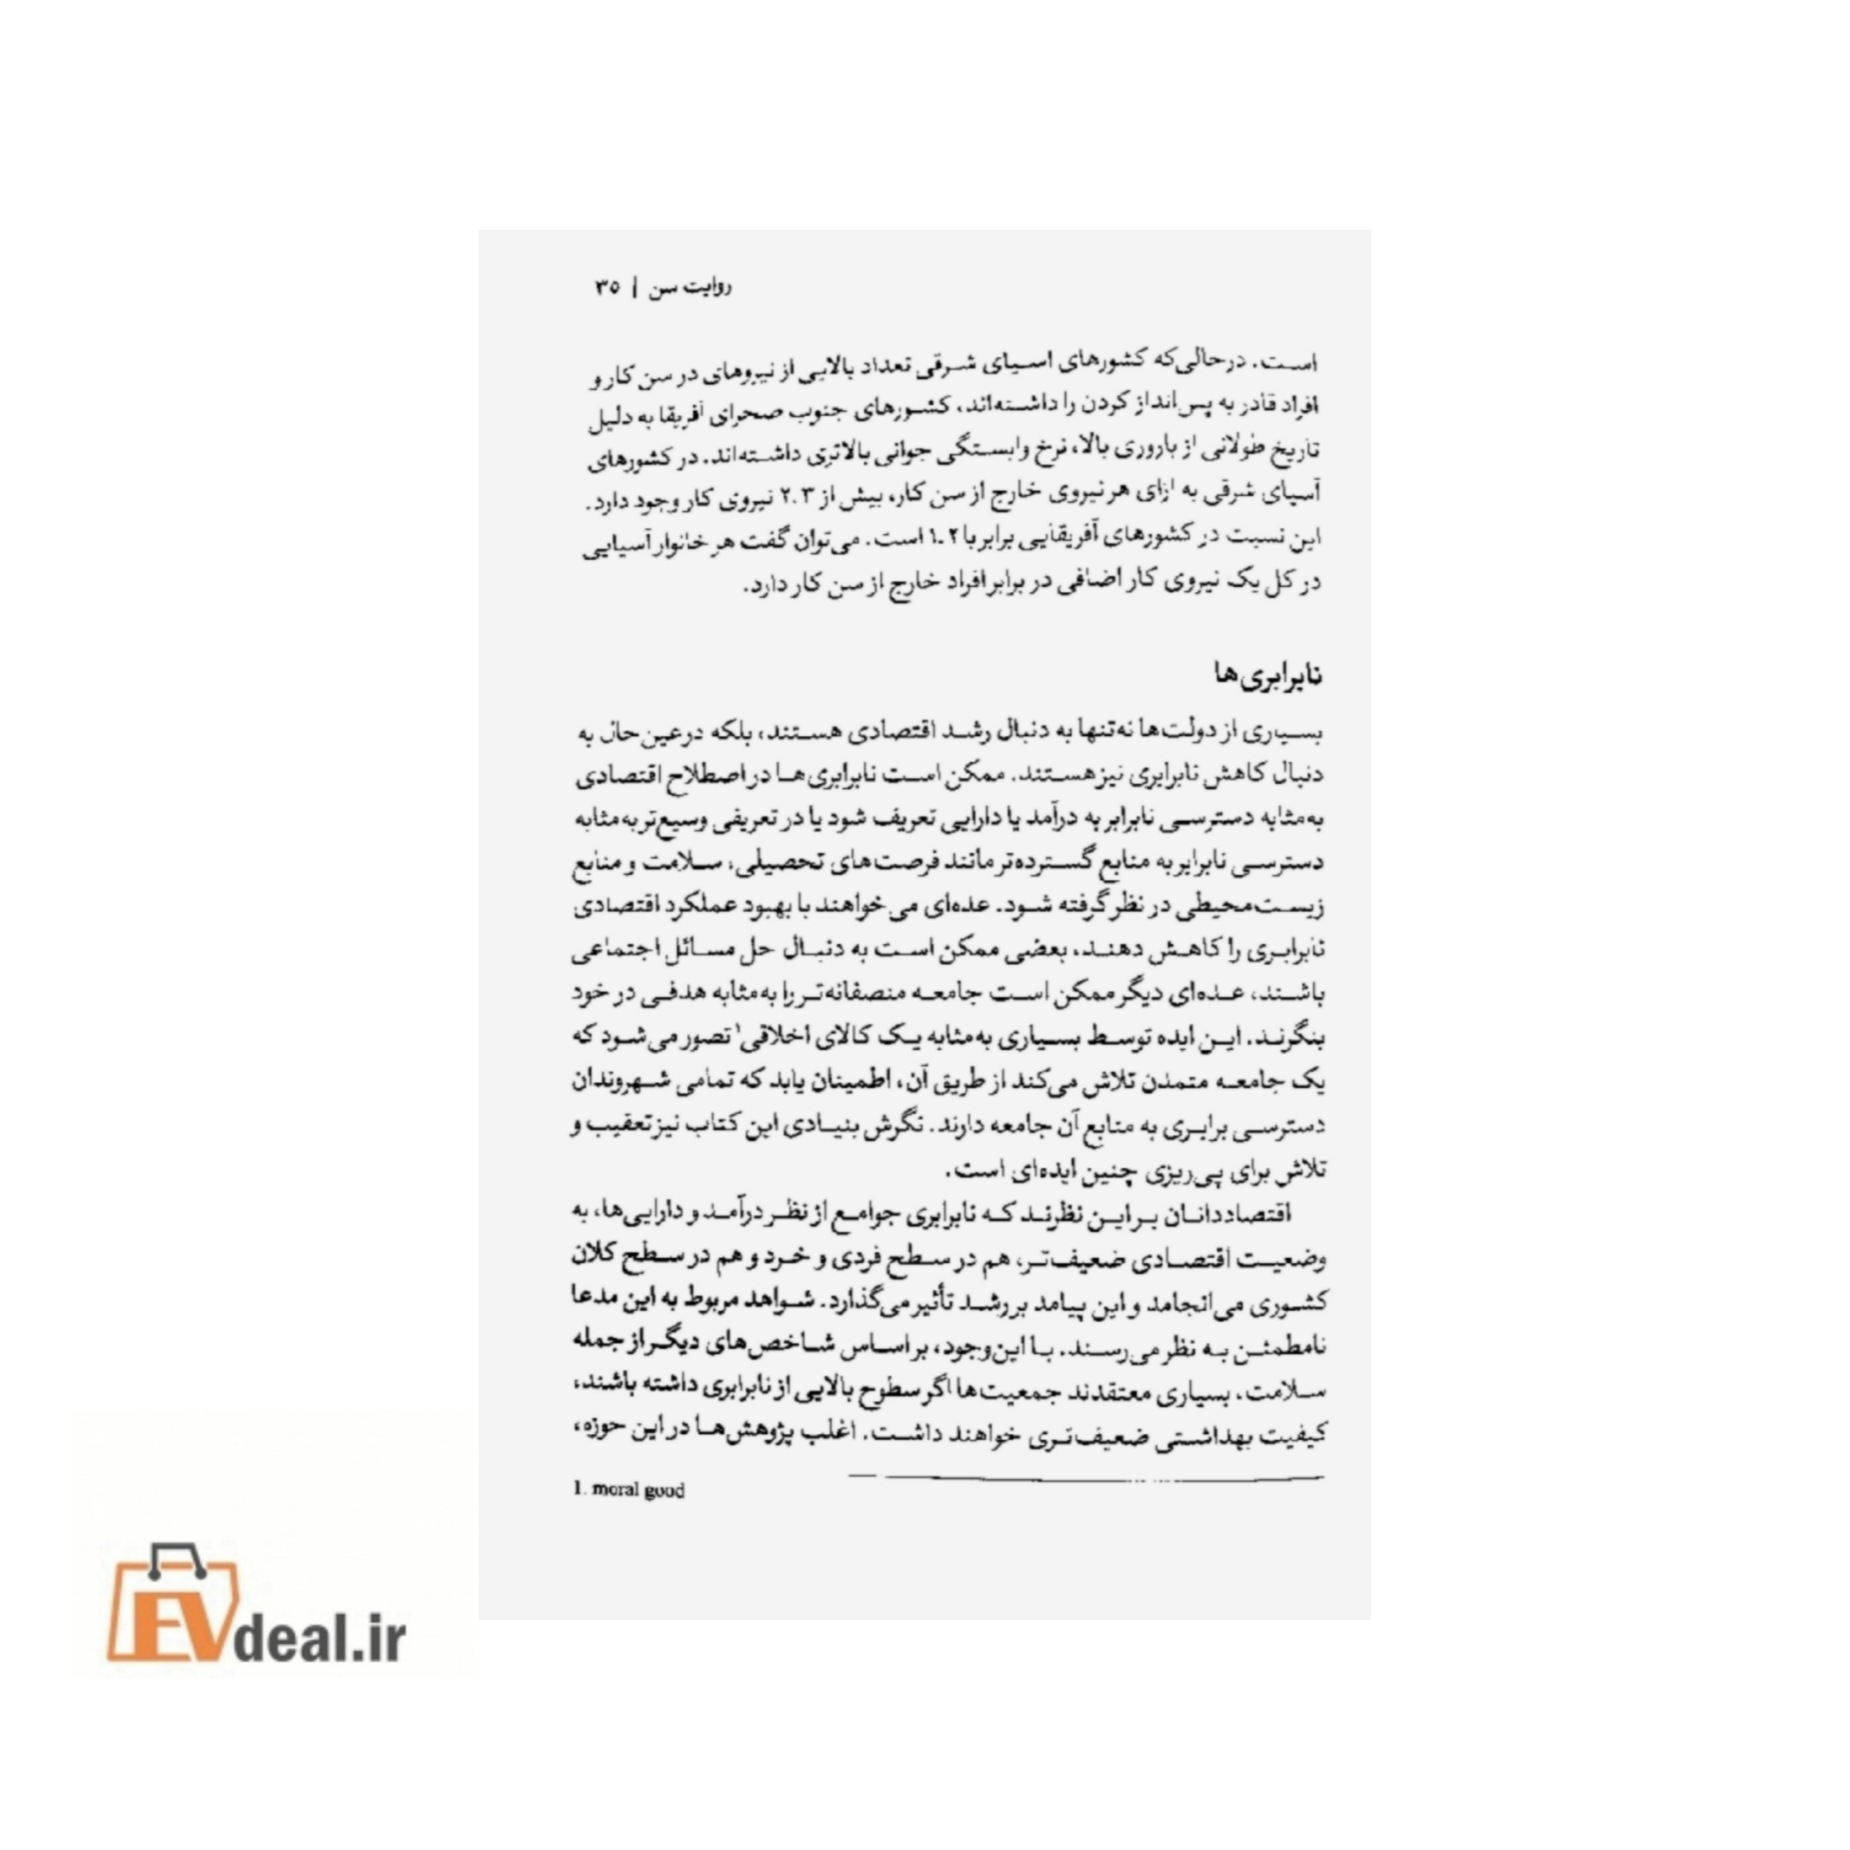 روایت سن | ۳۵
است. درحالی‌که کشورهای آسیای شرقی تعداد بالایی از نیروهای در سن کار و
افراد قادر به پس‌انداز کردن را داشته‌اند، کشورهای جنوب صحرای آفریقا به دلیل
تاریخ طولانی از باروری بالا، نرخ وابستگی جوانی بالاتری داشته‌اند. در کشورهای
آسیای شرقی به ازای هر نیروی خارج از سن کار، بیش از ۲.۳ نیروی کار وجود دارد.
این نسبت در کشورهای آفریقایی برابر با ۱.۲ است. می‌توان گفت هر خانوار آسیایی
در کل یک نیروی کار اضافی در برابر افراد خارج از سن کار دارد.
نابرابری‌ها
بسیاری از دولت‌ها نه‌تنها به دنبال رشد اقتصادی هستند، بلکه درعین‌حال به
دنبال کاهش نابرابری نیز هستند. ممکن است نابرابری‌ها در اصطلاح اقتصادی
به‌مثابه دسترسی نابرابر به درآمد یا دارایی تعریف شود یا در تعریفی وسیع‌تر به‌مثابه
دسترسی نابرابر به منابع گسترده‌تر مانند فرصت‌های تحصیلی، سلامت و منابع
زیست‌محیطی در نظر گرفته شود. عده‌ای می‌خواهند با بهبود عملکرد اقتصادی
نابرابری را کاهش دهند، بعضی ممکن است به دنبال حل مسائل اجتماعی
باشند، عده‌ای دیگر ممکن است جامعه منصفانه‌تر را به‌مثابه هدفی در خود
بنگرند. این ایده توسط بسیاری به‌مثابه یک کالای اخلاقی۱ تصور می‌شود که
یک جامعه متمدن تلاش می‌کند از طریق آن، اطمینان یابد که تمامی شهروندان
دسترسی برابری به منابع آن جامعه دارند. نگرش بنیادی این کتاب نیز تعقیب و
تلاش برای پی‌ریزی چنین ایده‌ای است.
اقتصاددانان بر این نظرند که نابرابری جوامع از نظر درآمد و دارایی‌ها، به
وضعیت اقتصادی ضعیف‌تر، هم در سطح فردی و خرد و هم در سطح کلان
کشوری می‌انجامد و این پیامد بر رشد تأثیر می‌گذارد. شواهد مربوط به این مدعا
نامطمئن به نظر می‌رسند. با این‌وجود، بر اساس شاخص‌های دیگر از جمله
سلامت، بسیاری معتقدند جمعیت‌ها اگر سطوح بالایی از نابرابری داشته باشند،
کیفیت بهداشتی ضعیف‌تری خواهند داشت. اغلب پژوهش‌ها در این حوزه،
1. moral good
EVdeal.ir